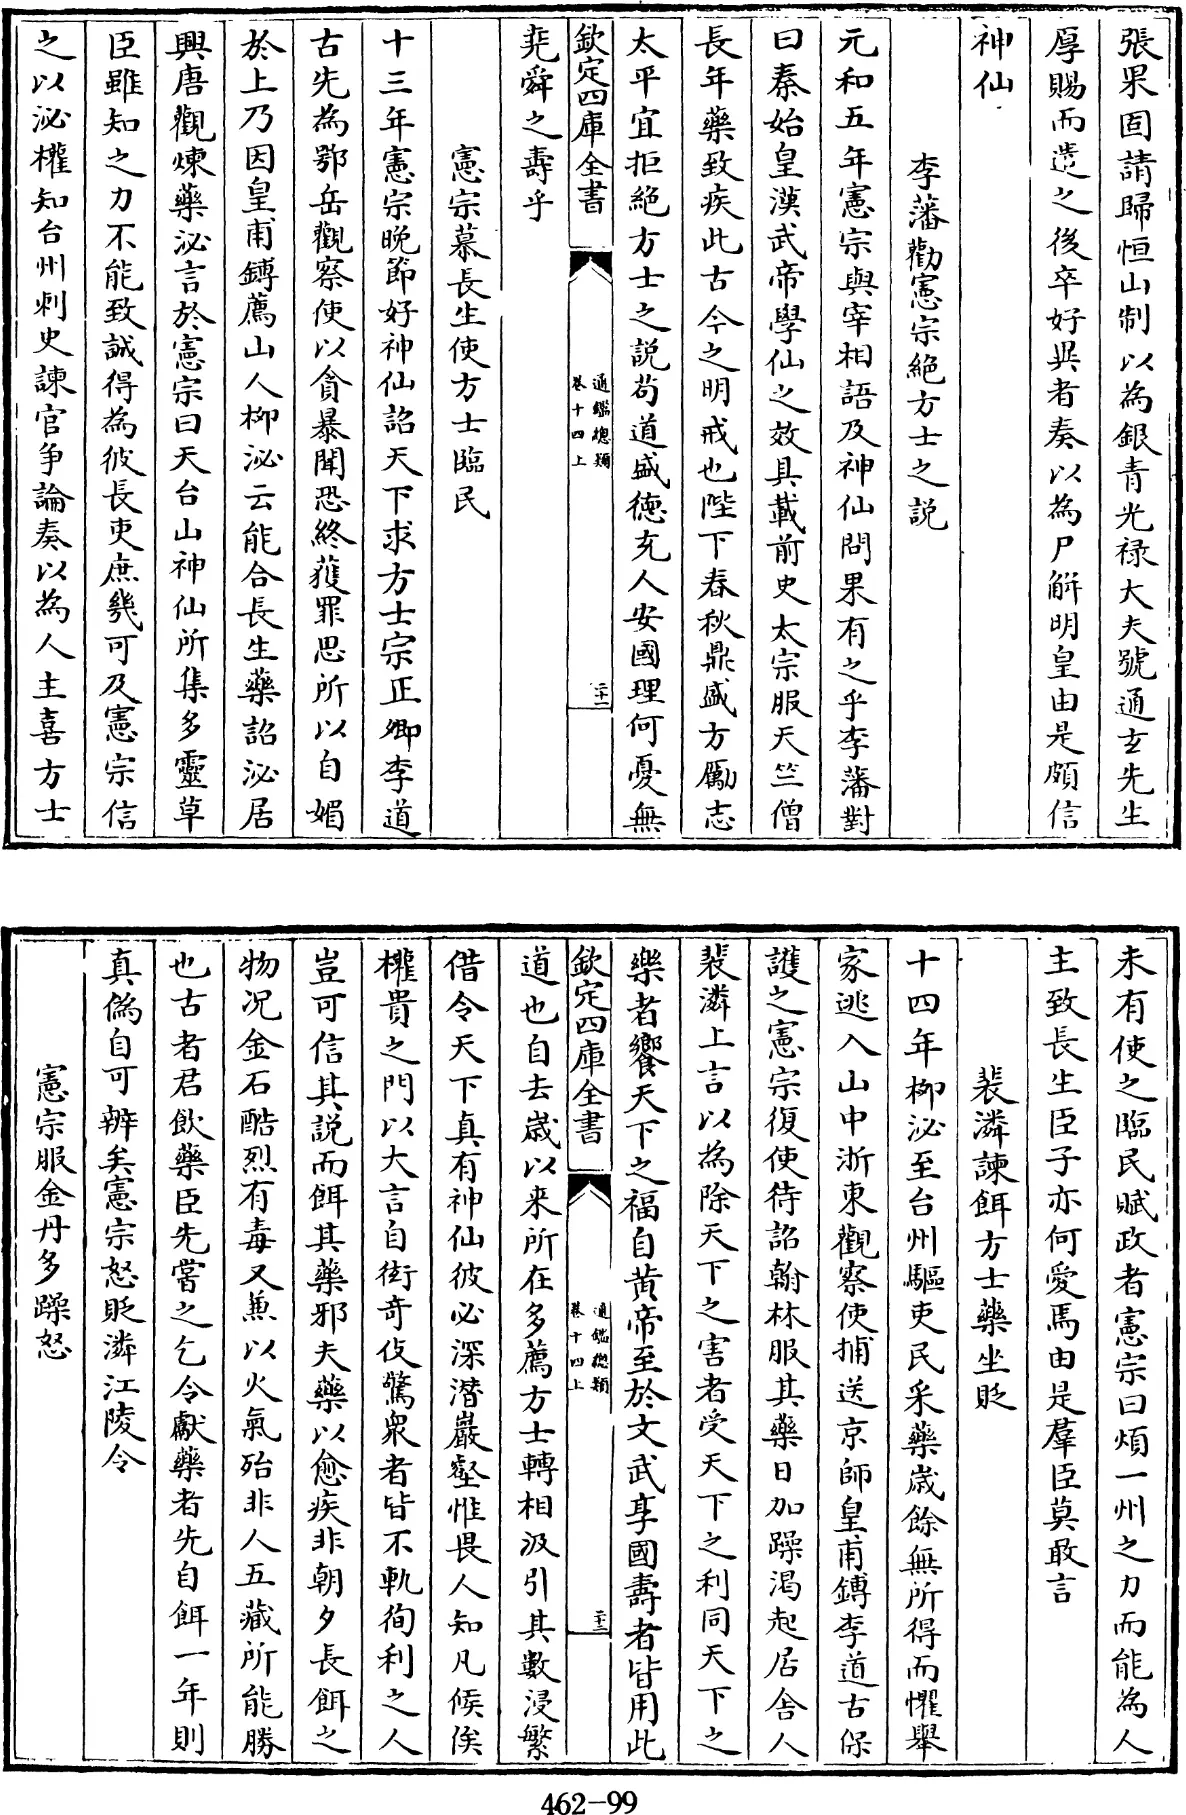 張果固請歸恒山制以為銀青光禄大夫號通玄先生
厚賜而遣之後卒好異者奏以為尸解明皇由是頗信
神仙
李藩勸憲宗絶方士之説
元和五年憲宗與宰相語及神仙問果有之乎李藩對
曰秦始皇漢武帝學仙之效具載前史太宗服天竺僧
長年藥致疾此古今之明戒也陛下春秋鼎盛方勵志
太平宜拒絶方士之説苟道盛徳充人安國理何憂無
欽定四庫全書
通鑑總類
卷十四上
二十二
堯舜之壽乎
憲宗慕長生使方士臨民
十三年憲宗晩節好神仙詔天下求方士宗正卿李道
古先為鄂岳觀察使以貪暴聞恐終獲罪思所以自媚
於上乃因皇甫鎛薦山人柳泌云能合長生藥詔泌居
興唐觀煉藥泌言於憲宗曰天台山神仙所集多靈草
臣雖知之力不能致誠得為彼長吏庶幾可及憲宗信
之以泌權知台州刺史諫官争論奏以為人主喜方士
未有使之臨民賦政者憲宗曰煩一州之力而能為人
主致長生臣子亦何愛焉由是羣臣莫敢言
裴潾諫餌方士藥坐貶
十四年柳泌至台州驅吏民采藥歲餘無所得而懼舉
家逃入山中浙東觀察使捕送京師皇甫鎛李道古保
護之憲宗復使待詔翰林服其藥日加躁渴起居舍人
裴潾上言以為除天下之害者受天下之利同天下之
樂者饗天下之福自黄帝至於文武享國壽者皆用此
欽定四庫全書
通鑑總類
卷十四上
二十三
道也自去歲以来所在多薦方士轉相汲引其數浸繁
借令天下真有神仙彼必深潛巖壑惟畏人知凡候俟
權貴之門以大言自衒奇伎驚衆者皆不軌徇利之人
豈可信其説而餌其藥邪夫藥以愈疾非朝夕長餌之
物况金石酷烈有毒又兼以火氣殆非人五藏所能勝
也古者君飲藥臣先嘗之乞令獻藥者先自餌一年則
真偽自可辨矣憲宗怒貶潾江陵令
憲宗服金丹多躁怒
462-99